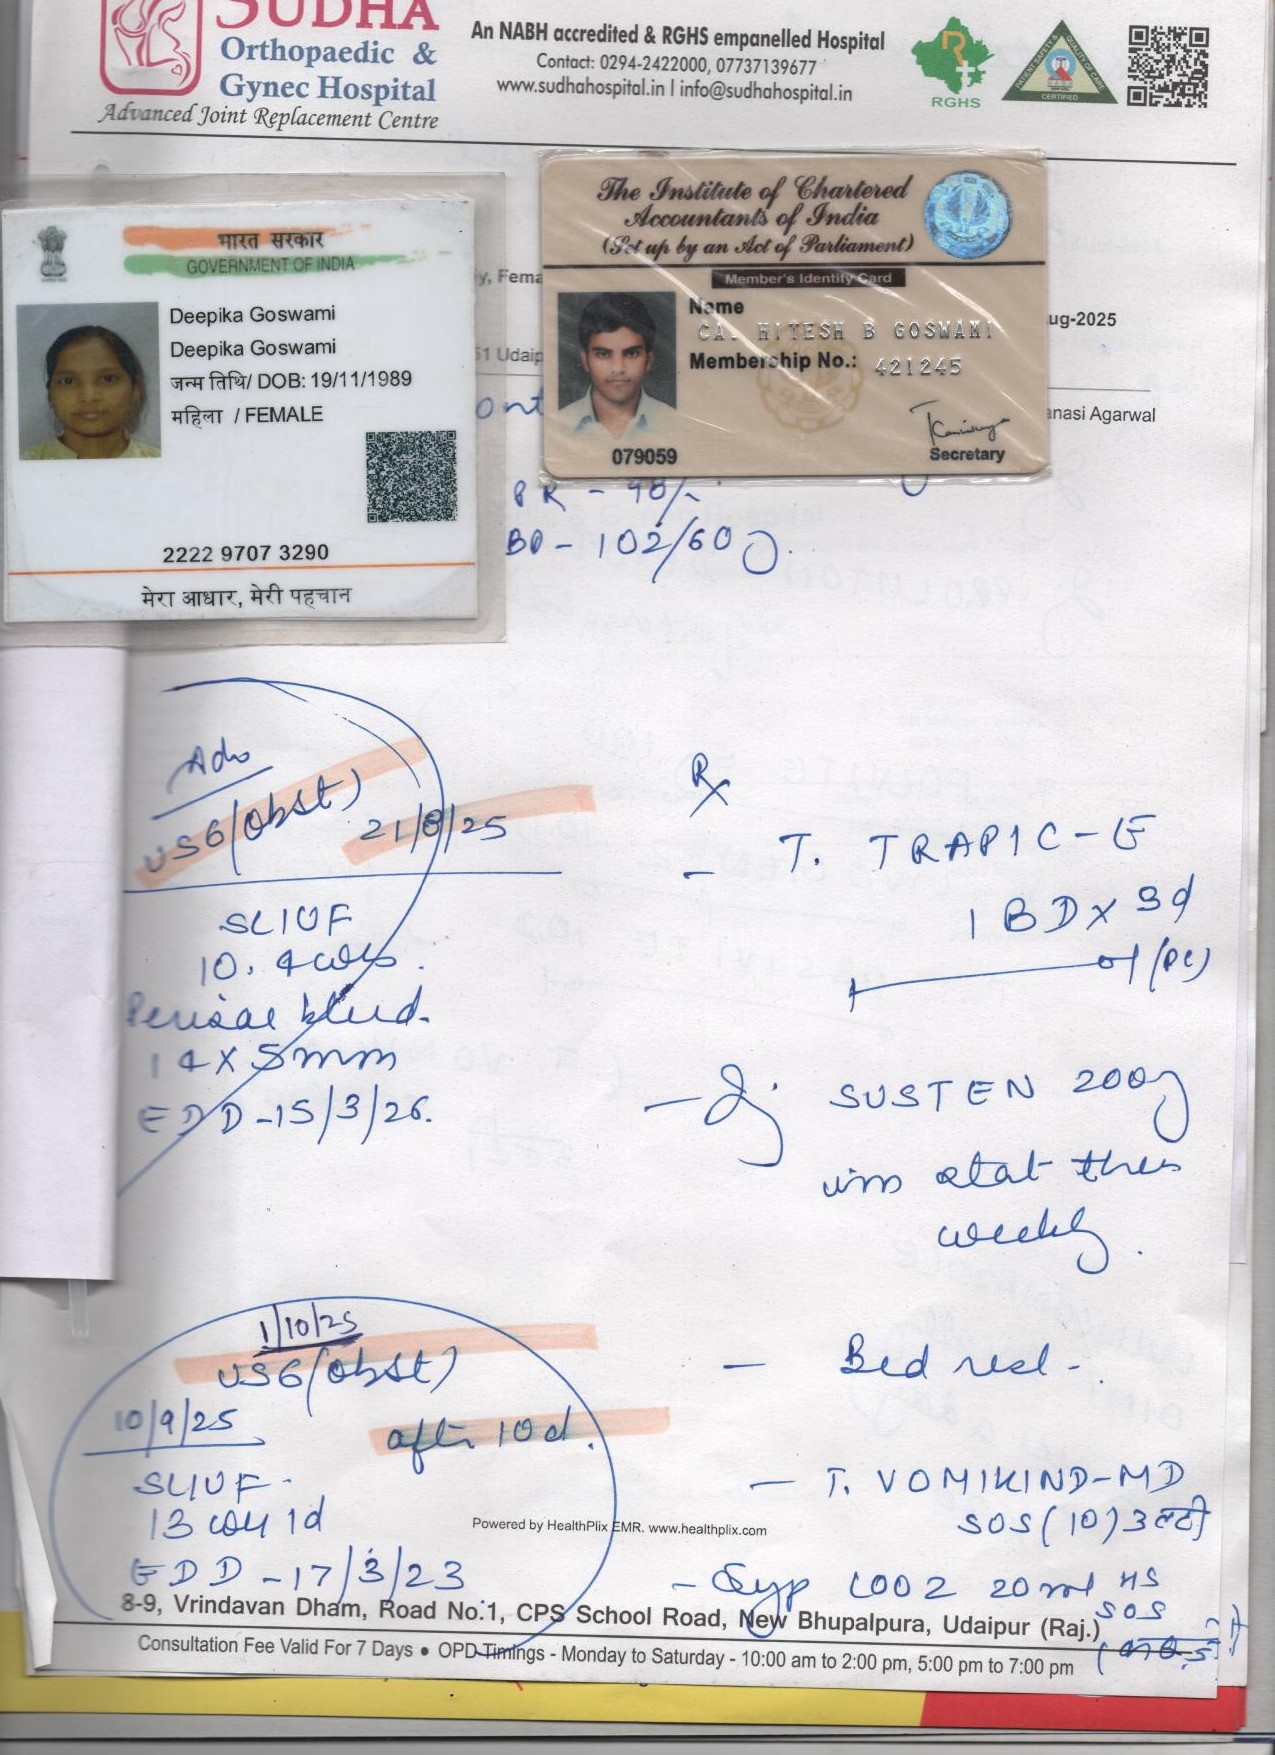 SUDHA
Orthopaedic &
Gynec Hospital
Advanced Joint Replacement Centre
An NABH accredited & RGHS empanelled Hospital
Contact: 0294-2422000, 07737139677
www.sudhahospital.in | info@sudhahospital.in
RGHS
CERTIFIED
भारत सरकार
GOVERNMENT OF INDIA
Deepika Goswami
Deepika Goswami
जन्म तिथि/ DOB: 19/11/1989
महिला / FEMALE
2222 9707 3290
मेरा आधार, मेरी पहचान
The Institute of Chartered
Accountants of India
(Set up by an Act of Parliament)
Member's Identity Card
Name
CA. HITESH B GOSWAMI
Membership No.: 421245
079059
Secretary
y, Fema
ug-2025
51 Udaip
anasi Agarwal
ont
PR - 98/
BP - 102/60
Adv
USG (Obst)
21/8/25
SLIUF
10.4 wks.
EDD - 15/3/26.
14 x 5mm
Rx
- T. TRAPIC-E
1 BD x 3d
(PC)
- Inj SUSTEN 200
im stat
weekly.
1/10/25
USG (Obst)
10/9/25
after 10d.
SLIUF
13 wks 1d
EDD - 17/3/23
- Bed rest -
- T. VOMIKIND-MD
SOS (10) उल्टी
- Syp LOOZ 20ml HS
SOS
Powered by HealthPlix EMR. www.healthplix.com
8-9, Vrindavan Dham, Road No.1, CPS School Road, New Bhupalpura, Udaipur (Raj.)
Consultation Fee Valid For 7 Days • OPD Timings - Monday to Saturday - 10:00 am to 2:00 pm, 5:00 pm to 7:00 pm